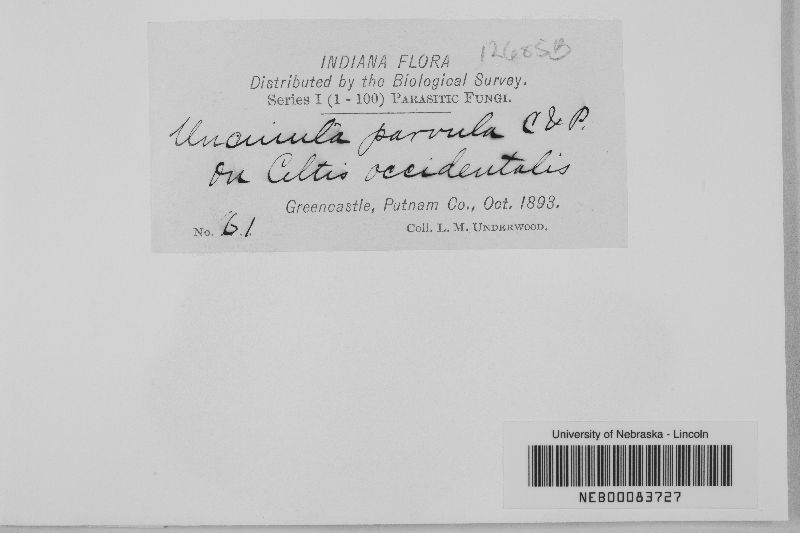 12685B
INDIANA FLORA
Distributed by the Biological Survey.
Series I (1 - 100) PARASITIC FUNGI.
Uncinula parvula C & P.
on Celtis occidentalis
Greencastle, Putnam Co., Oct. 1893.
No. 61 Coll. L. M. UNDERWOOD.
University of Nebraska - Lincoln
NEB00083727